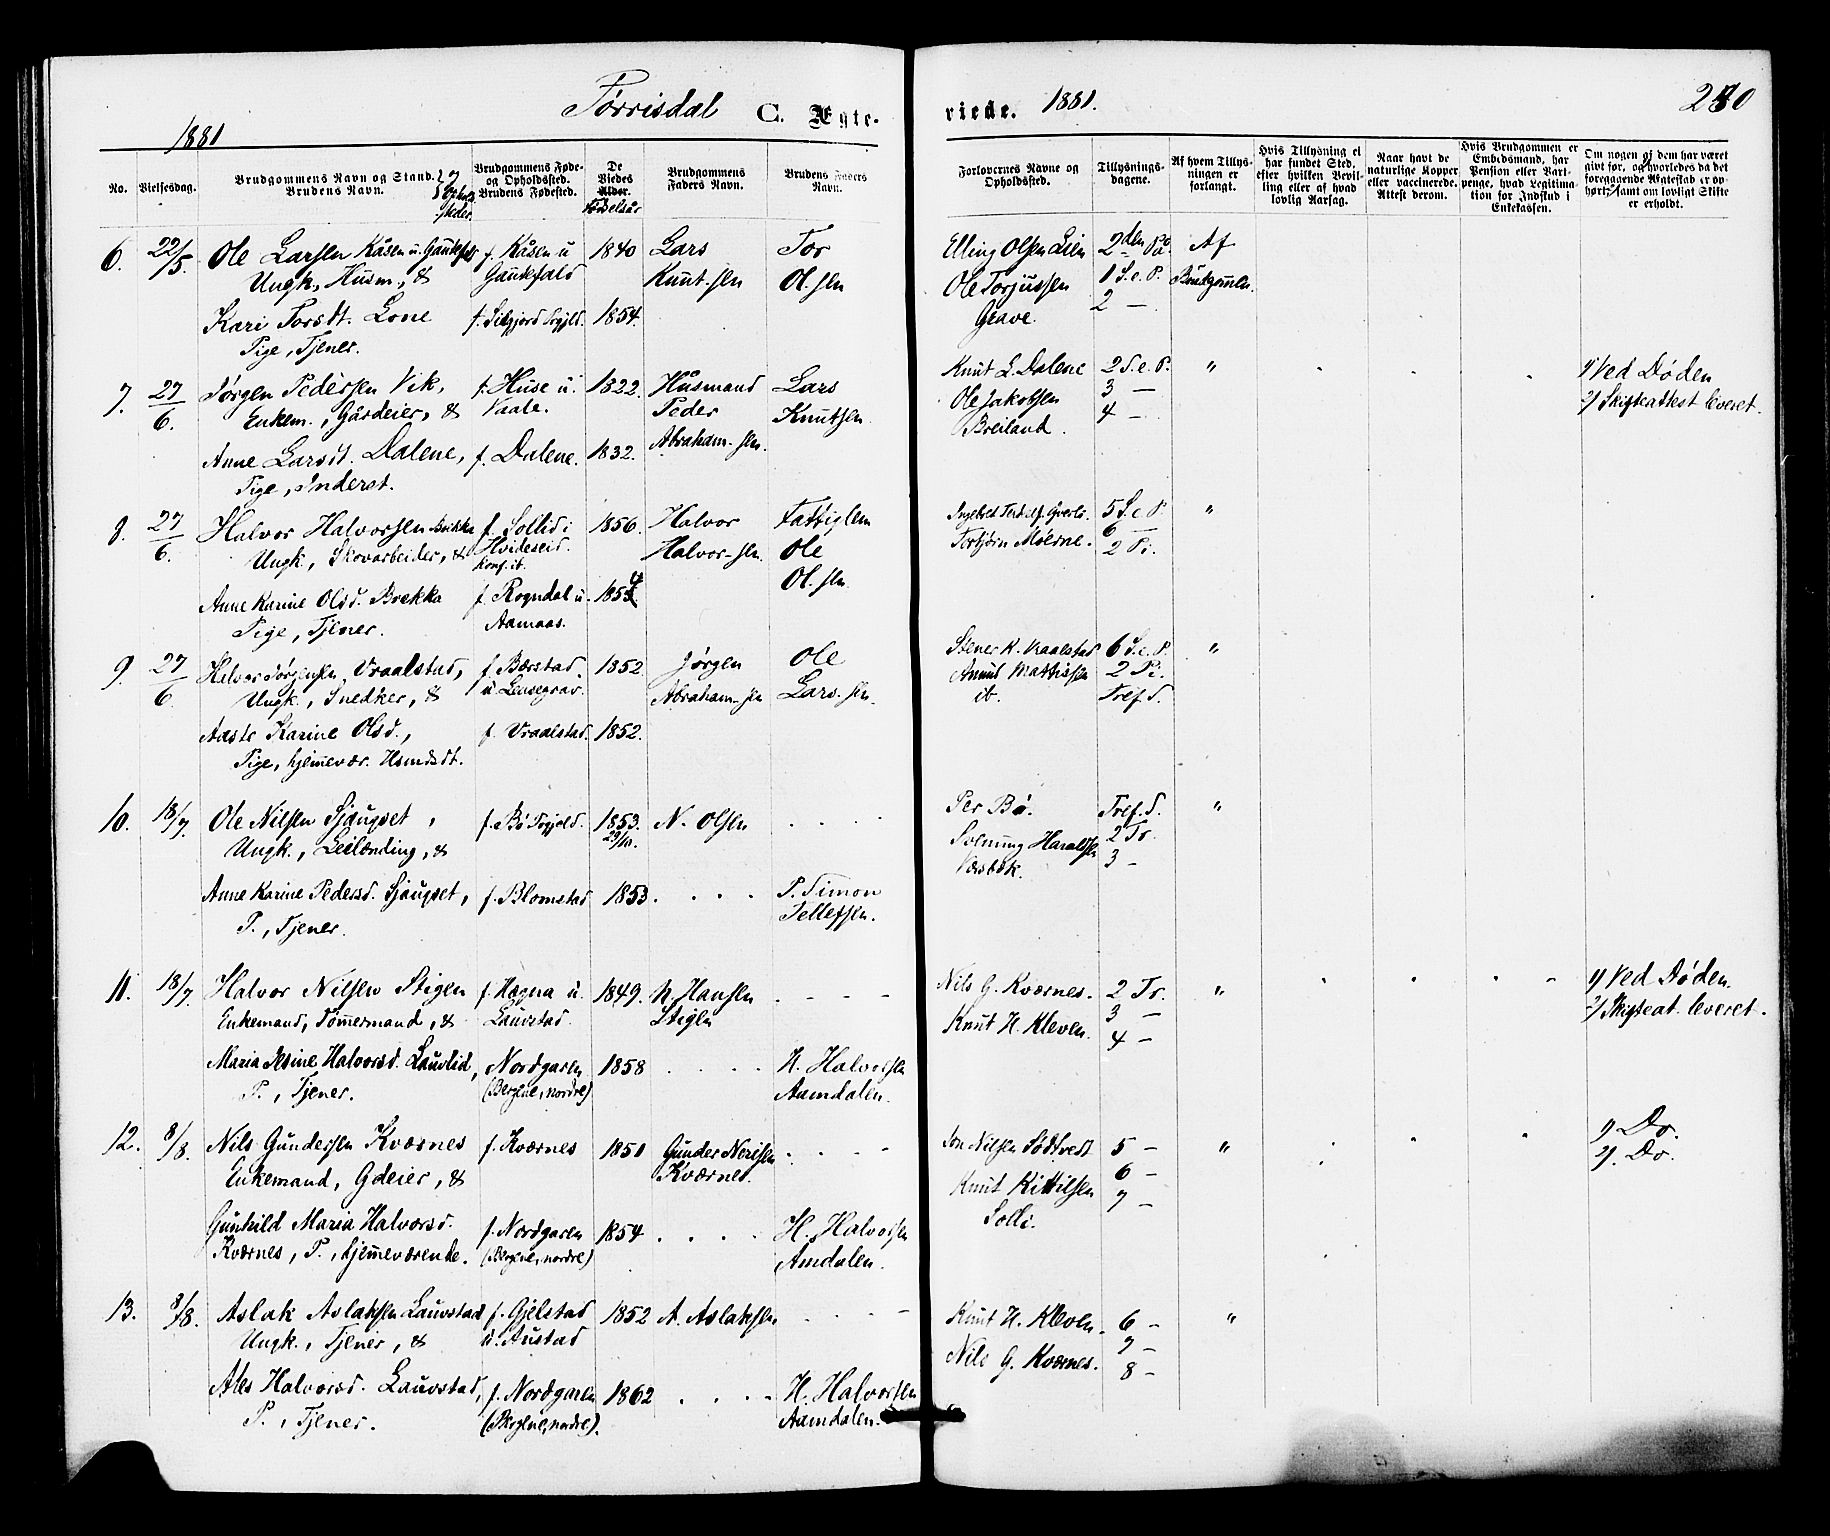 Tørrisdal C. Ægte-
viede. 1881. 280
1881
No.
Vielsesdag.
Brudgommens Navn og Stand.
Brudens Navn.
Brudgommens Føde-
og Opholdssted.
Brudens Fødested.
De
Viedes
Alder.
Fødselsår
Brudgommens
Faders Navn.
Brudens Faders
Navn.
Forlovernes Navne og
Opholdssted.
Tillysnings-
dagene.
Af hvem Tillys-
ningen er
forlangt.
Hvis Tillysning ei
har fundet Sted,
efter hvilken Bevil-
ling eller af hvad
lovlig Aarsag.
Naar havt de
naturlige Kopper
eller vaccinerede.
Attest derom.
Hvis Brudgommen er
Embedsmand, har
Pension eller Vart-
penge, hvad Legitima-
tion for Indskud i
Enkekassen.
Om nogen af dem har været
givt før, og hvorledes da det
foregaaende Ægteskab er op-
hørt, samt om lovligt Skifte
er erholdt.
6. 22/5. Ole Larsen Kåsen u. Gaukefjeld f. Kåsen u 1840 Lars Tor Elling Olsen Lien 2den På Af
Ungk., Husm., & Gaukefald Knut-sen Ol.sen Ole Torjussen 1 S. e. P. Brudgommen.
Kari Torsdt. Lone f. Silgjord 1854. Grave. 2 —
Pige, Tjener.
7. 27/6. Jørgen Pedersen Vik, f. Huse u. 1822. Husmand Lars Knut L. Dalene 2 S. e. P. " 1/ Ved Døden
Enkem., Gårdeier, & Vaale. Peder Knutsen Ole Jakobsen 3 — 2/ Skifteattest leveret.
Anne Larsdt. Dalene, f. Dalene. 1832. Abraham-sen. Breiland. 4 —
Pige, Inderst.
8. 27/6. Halvor Halvorsen Brekka f. Sollid i 1856. Halvor Fattiglem 5 S. e P. "
Ungk., Skovarbeider, & Hvideseid. Halvor-sen. Ole Torbjørn Moerne. 6 —
konf. ib. Ol.sen 2 Pi.
Anne Karine Olsd. Brekka f. Rogndal u. 1854
Pige, Tjener. Aamaas.
9. 27/6. Halvor Jørgensen Vraalstad, f. Bærstad. 1852. Jørgen Ole Stener K. Vraalstad 6 S. e. P. "
Ungk., Snedker, & u. Lensegrav. Abraham-sen Lars.sen. Amund Mattissen 2 Pi.
ib. Tref. S.
Aaste Karine Olsd., f. Vraalstad. 1852.
Pige, hjemmevær. Hsmdsdt.
10. 18/7. Ole Nilsen Sjaugset, f. Bø 1853. N. Olsen Per Bø. Tref. S. "
Ungk., Leilænding, & 23/10. Solmung Haraldsen 2 Tr.
Væsbek. 3 —
Anne Karine Pedersd. Sjaugset, f. Blomstad 1853 P. Simon
P., Tjener. Tellefsen.
11. 18/7. Halvor Nilsen Stigen f. Hægna u. 1849. N. Hansen Nils G. Kværnes. 2 Tr. " 1/ Ved Døden.
Enkemand, Tømmermand, & Lauvstad. Stigen Knut H. Kleven. 3 — 2/ Skifteat. leveret.
4 —
Maria Jesine Halvorsd. Lauvlid, Nordgaren 1858 H. Halvorsen
P., Tjener. (Bergene, nordre) Aamdalen.
12. 8/8. Nils Gundersen Kværnes f. Kværnes 1851 Gunder Nerisen Jon Nilsen Sødtvedt 5 — " 1/ Do.
Enkemand, Gdeier, & Kværnes. Knut Kittilsen 6 — 2/. Do.
Solli. 7 —
Gunhild Maria Halvorsd. f. Nordgaren 1854 H. Halvorsen
Kværnes, P., hjemmeværende. (Bergene, nordre) Amdalen.
13. 8/8. Aslak Aslaksen Lauvstad f. Gjelstad 1852 A. Aslaksen Knut H. Kleven. 6 — "
Ungk., Tjener, & u. Austad Nils G. Kværnes. 7 —
8 —
Ales Halvorsd. Lauvstad, f. Nordgaren 1862 H. Halvorsen
P., Tjener. (Bergene, nordre). Aamdalen.